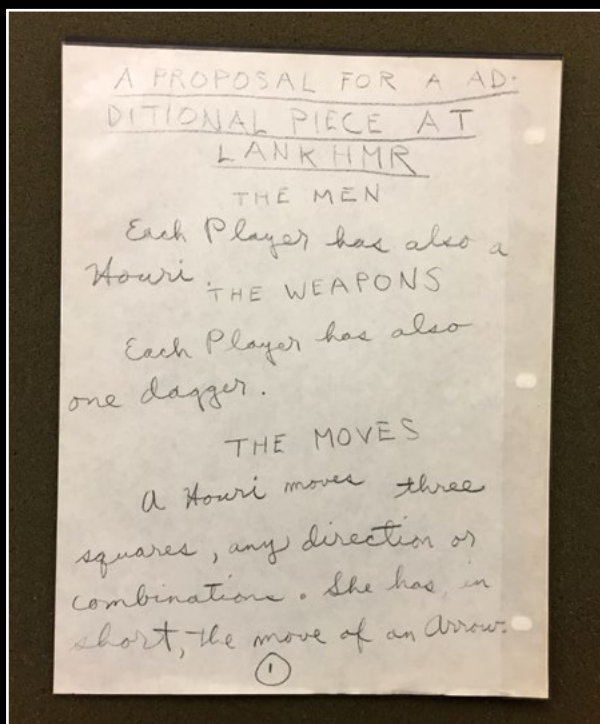 A PROPOSAL FOR A AD-
DITIONAL PIECE AT
LANKHMR
THE MEN
Each Player has also a
Houri.
THE WEAPONS
Each Player has also
one dagger.
THE MOVES
A Houri moves three
squares, any direction or
combinations. She has, in
short, the move of an Arrow.
1